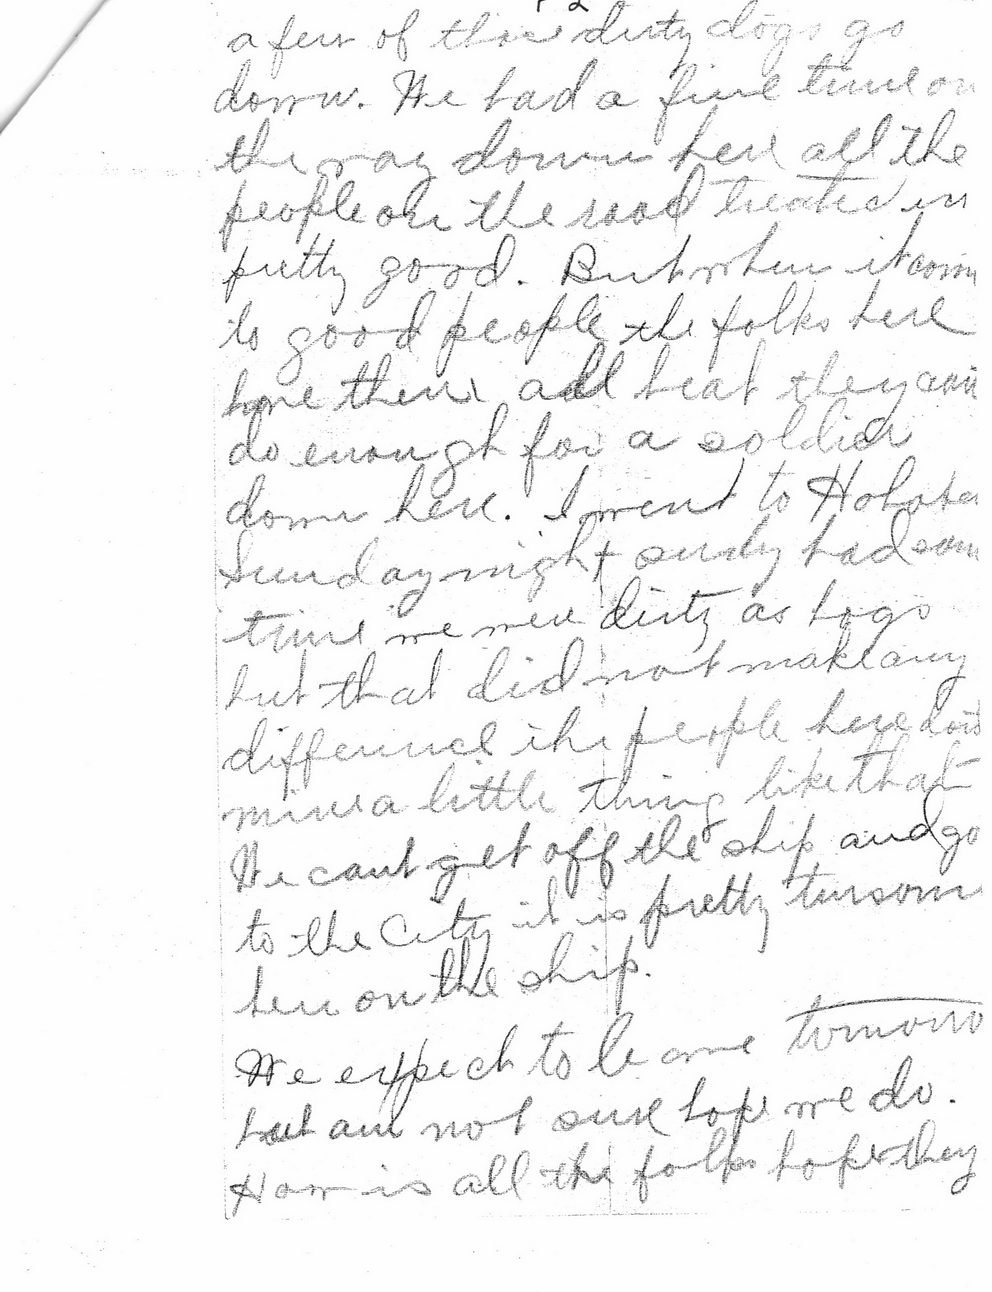 a few of those dirty dogs go
down. We had a fine time on
the way down here all the
people on the road treated us
pretty good. But when it com
to good people the folks here
have them all beat they can
do enough for a soldier
down here. I went to Hoboke
Sunday night surly had som
time we were dirty as hogs
but that did not make any
difference the people here dois
mine a little thing like that
We cant get off the ship and go
to the City it is pretty tirsom
here on the ship.
We expect to leave tomorro
but am not sure hope we do.
How is all the folks hope they